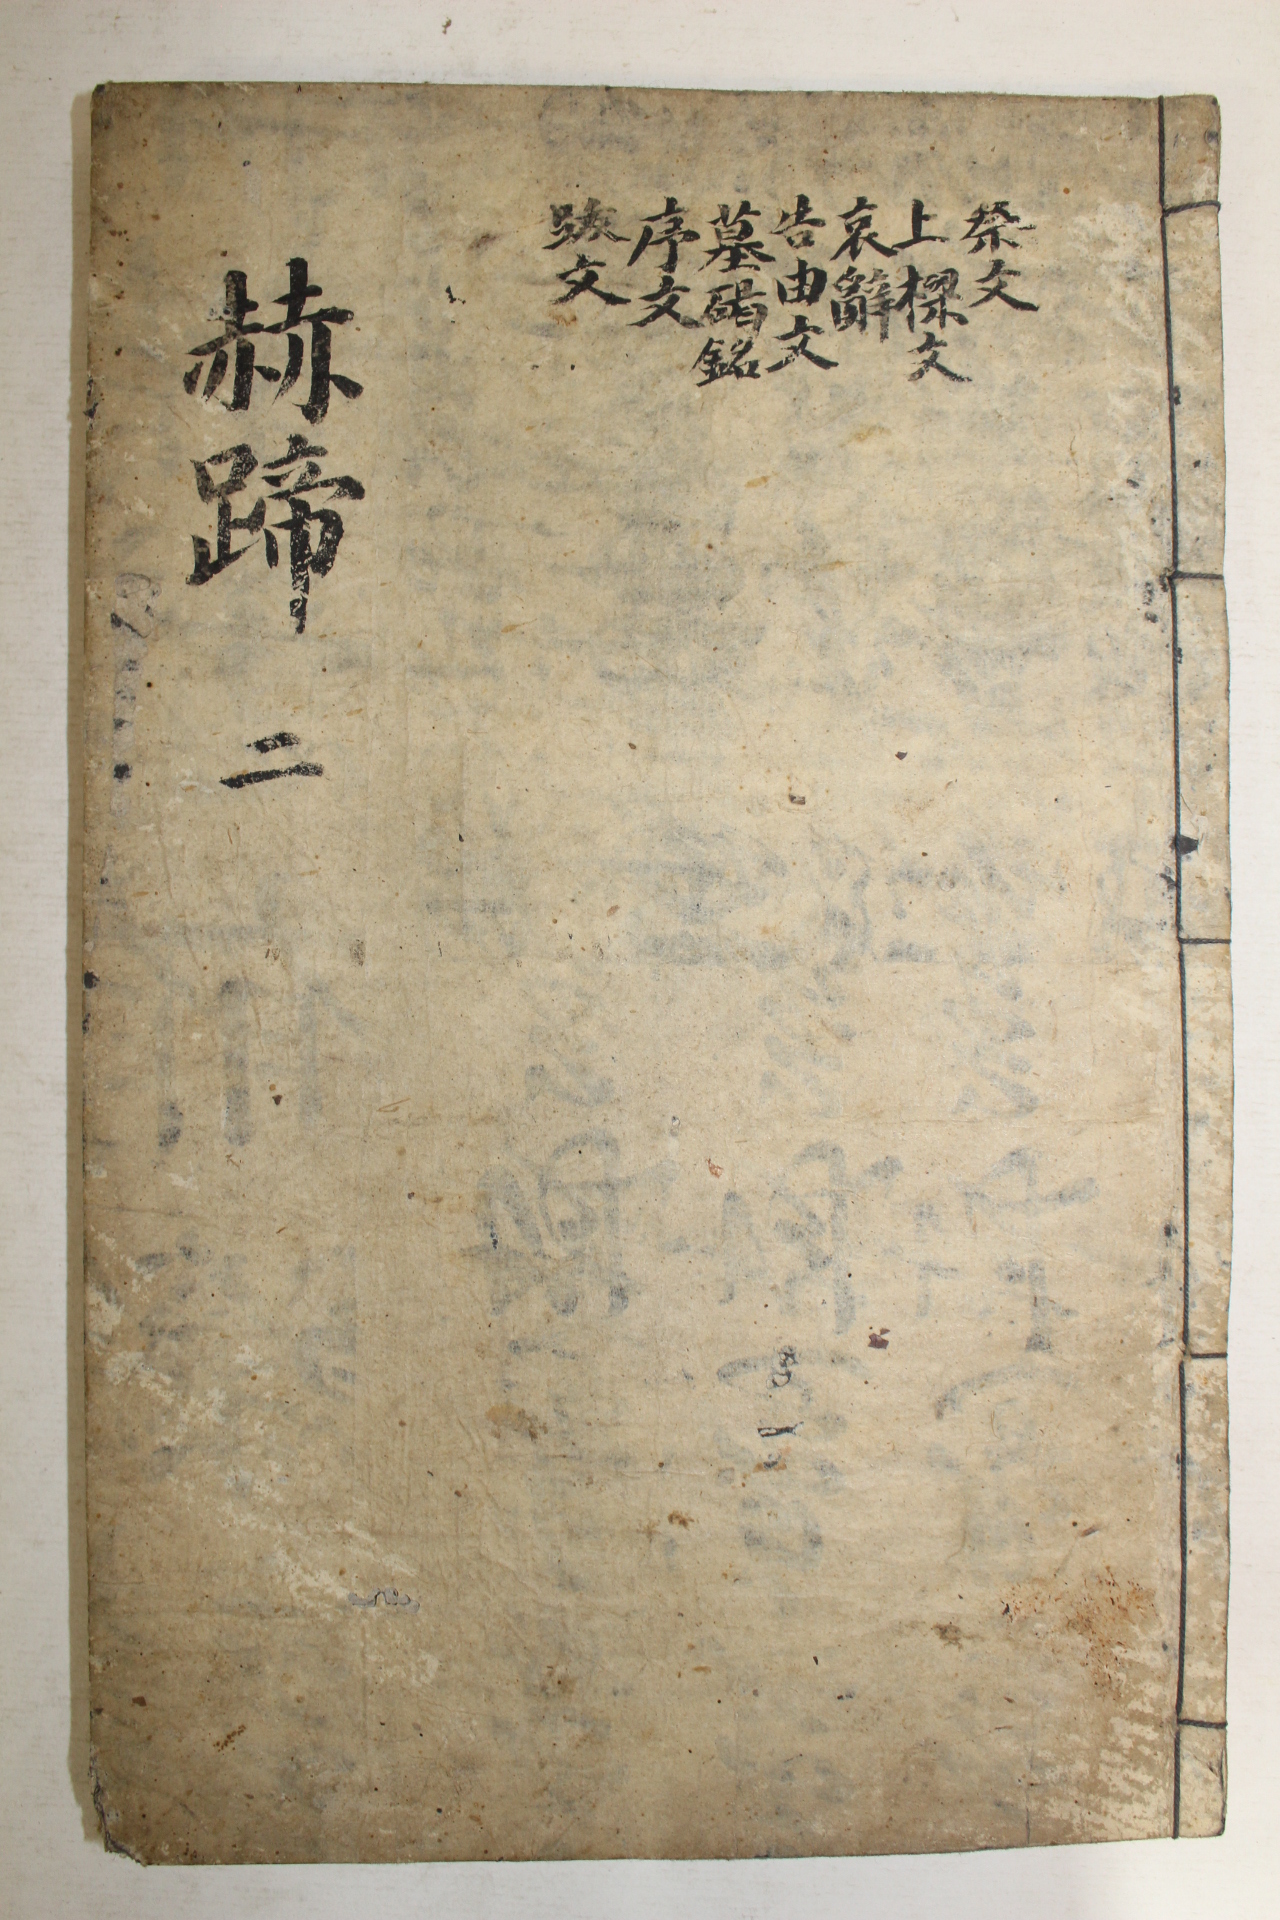 祭文
上樑文
哀辭
告由文
墓碣銘
序文
跋文
赫蹄 二